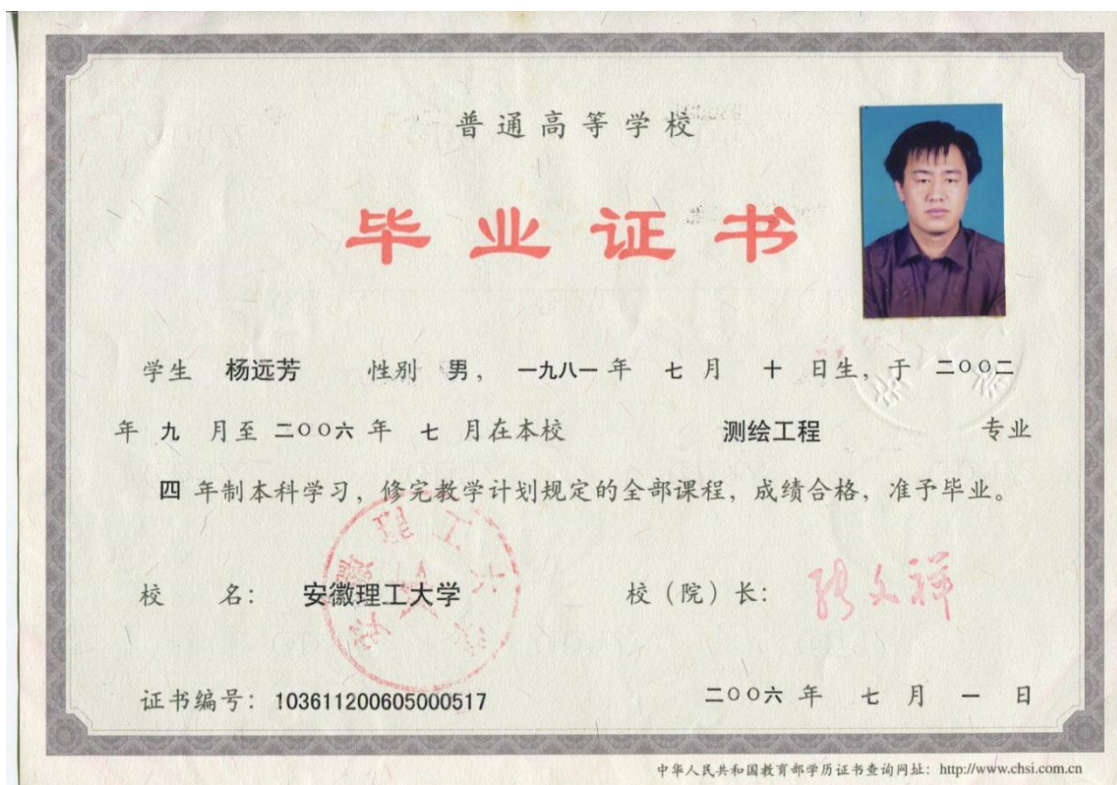 普通高等学校
毕业证书
学生 杨远芳 性别 男, 一九八一 年 七 月 十 日生, 于 二〇〇二
年 九 月至 二〇〇六 年 七 月在本校 测绘工程 专业
四 年制本科学习, 修完教学计划规定的全部课程, 成绩合格, 准予毕业。
校 名: 安徽理工大学 校(院)长: 张文祥
安徽理工大学
证书编号: 103611200605000517 二〇〇六 年 七 月 一 日
中华人民共和国教育部学历证书查询网址: http://www.chsi.com.cn